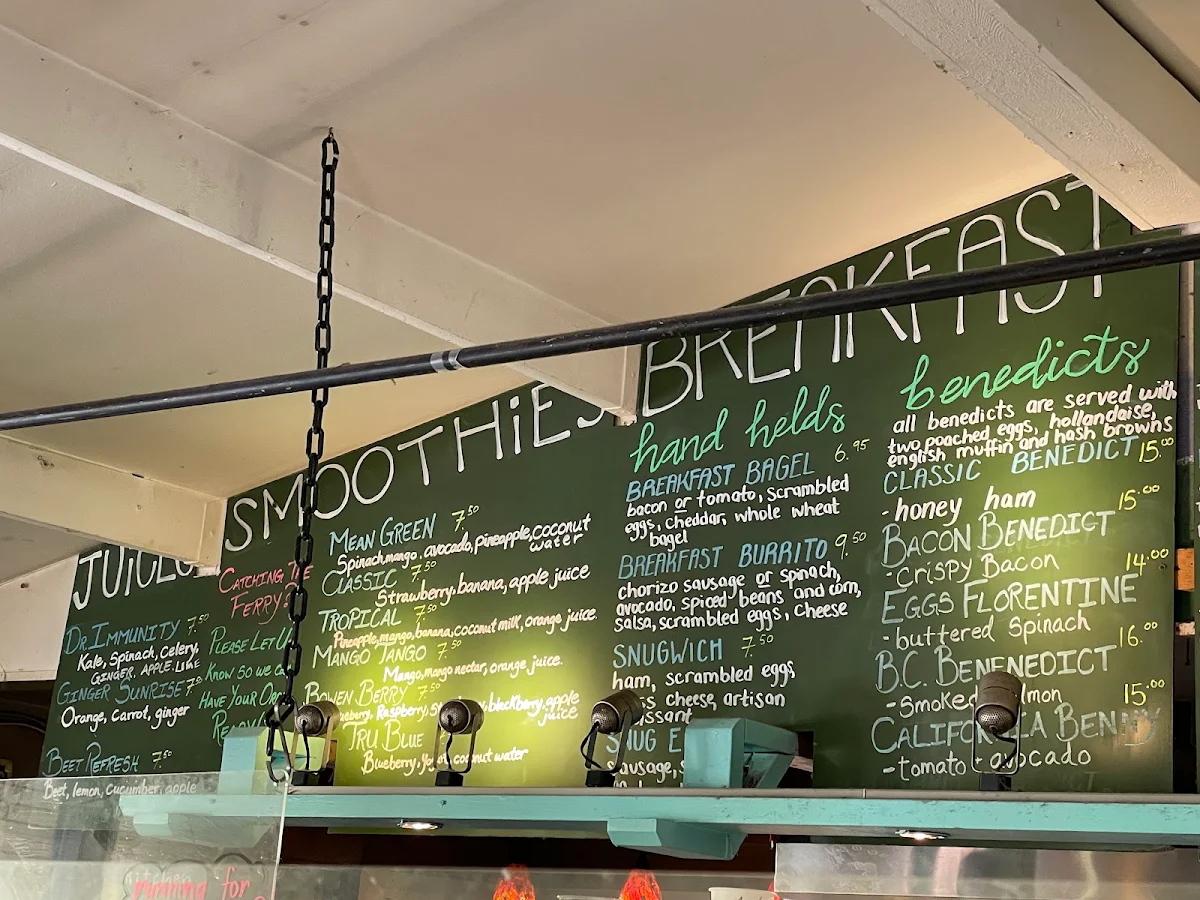 DR. IMMUNITY 7.50
Kale, Spinach, Celery,
GINGER, APPLE, LIME
GINGER SUNRISE 7.50
Orange, carrot, ginger
BEET REFRESH 7.50
Beet, lemon, cucumber, apple
SMOOTHiES
CATCHING THE
FERRY?
PLEASE LET
KNOW SO WE
HAVE YOUR
MEAN GREEN 7.50
Spinach, mango, avocado, pineapple, coconut
water
CLASSIC 7.50
Strawberry, banana, apple juice
TROPICAL 7.50
Pineapple, mango, banana, coconut milk, orange juice.
MANGO TANGO 7.50
Mango, mango nectar, orange juice.
BOWEN BERRY 7.50
Raspberry, blackberry, apple
juice
TRU BLUE
Blueberry, coconut water
BREAKFAST
hand helds
BREAKFAST BAGEL 6.95
bacon or tomato, scrambled
eggs, cheddar, whole wheat
bagel
BREAKFAST BURRITO 9.50
chorizo sausage or spinach,
avocado, spiced beans and corn,
salsa, scrambled eggs, cheese
SNUGWICH 7.50
ham, scrambled eggs
cheese, artisan
SNUG
sausage,
benedicts
all benedicts are served with
two poached eggs, hollandaise,
english muffin and hash browns
CLASSIC BENEDICT 15.00
- honey ham
BACON BENEDICT 15.00
- CRISPY BACON
EGGS FLORENTINE 14.00
- buttered spinach
B.C. BENENDICT 16.00
- Smoked
CALIFORNIA BENNY 15.00
- tomato + avocado
kitchen
running for